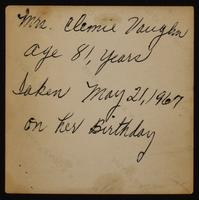 Mrs. Clemie Vaughn
age 81, years
Taken May 21, 1967
on her Birthday